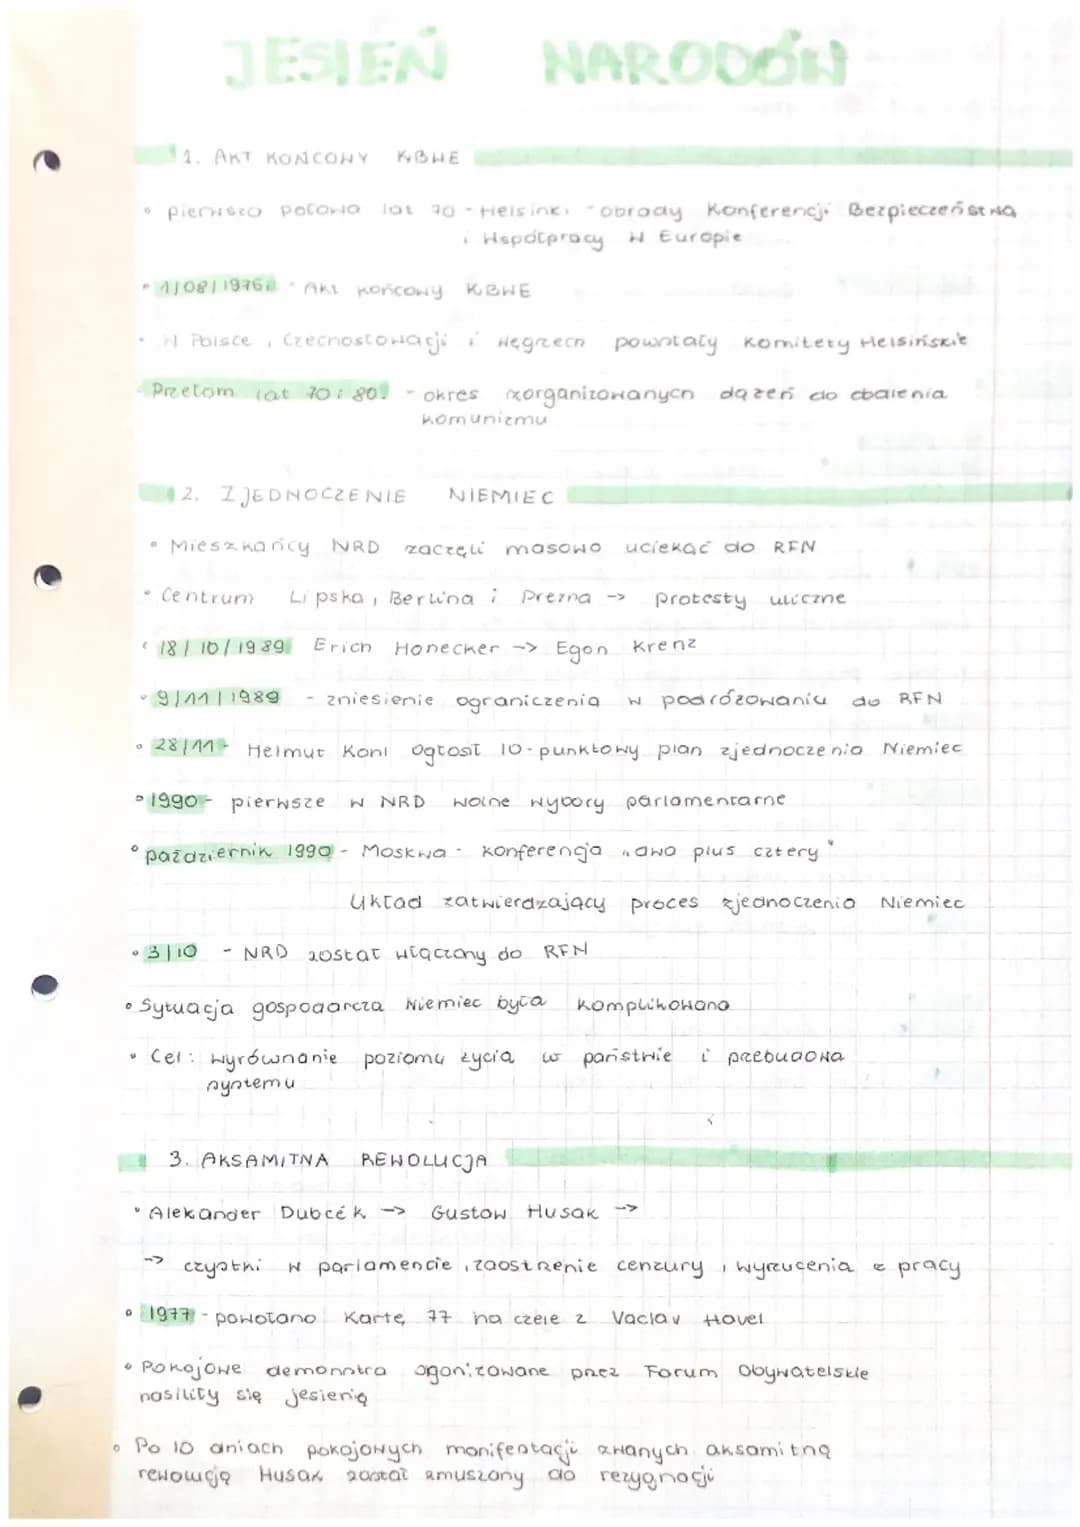 JESIEŃ NARODÓW
1. AKT KOŃCOWY KBWE
• pierwsza połowa lat 70 - Helsinki - obrady Konferencji Bezpieczeństwa
i Współpracy w Europie
• 1/08/1976r. - Akt końcowy KBWE
• W Polsce, Czechosłowacji i Węgrzech powstały Komitety Helsińskie
Przełom lat 70 i 80. - okres zorganizowanych dążeń do obalenia
komunizmu
2. ZJEDNOCZENIE NIEMIEC
• Mieszkańcy NRD zaczęli masowo uciekać do RFN
• Centrum Lipska, Berlina i Drezna -> protesty uliczne
• 18/10/1989 Erich Honecker -> Egon Krenz
• 9/11/1989 - zniesienie ograniczenia w podróżowaniu do RFN
• 28/11 - Helmut Kohl ogłosił 10-punktowy plan zjednoczenia Niemiec
• 1990 - pierwsze w NRD wolne wybory parlamentarne
• październik 1990 - Moskwa - konferencja „dwa plus cztery"
Układ zatwierdzający proces zjednoczenia Niemiec
• 3/10 - NRD został włączony do RFN
• Sytuacja gospodarcza Niemiec była komplikowana
• Cel: wyrównanie poziomu życia w państwie i przebudowa
systemu
3. AKSAMITNA REWOLUCJA
• Alekander Dubcék -> Gustaw Husak ->
-> czystki w parlamencie, zaostrzenie cenzury, wyrzucenia z pracy
• 1977 - powołano Kartę 77 na czele z Vaclav Havel
• Pokojowe demonstra ogonizowane przez Forum Obywatelskie
nasiliły się jesienią
• Po 10 dniach pokojowych manifestacji zwanych aksamitną
rewolucją Husak został zmuszony do rezygnacji